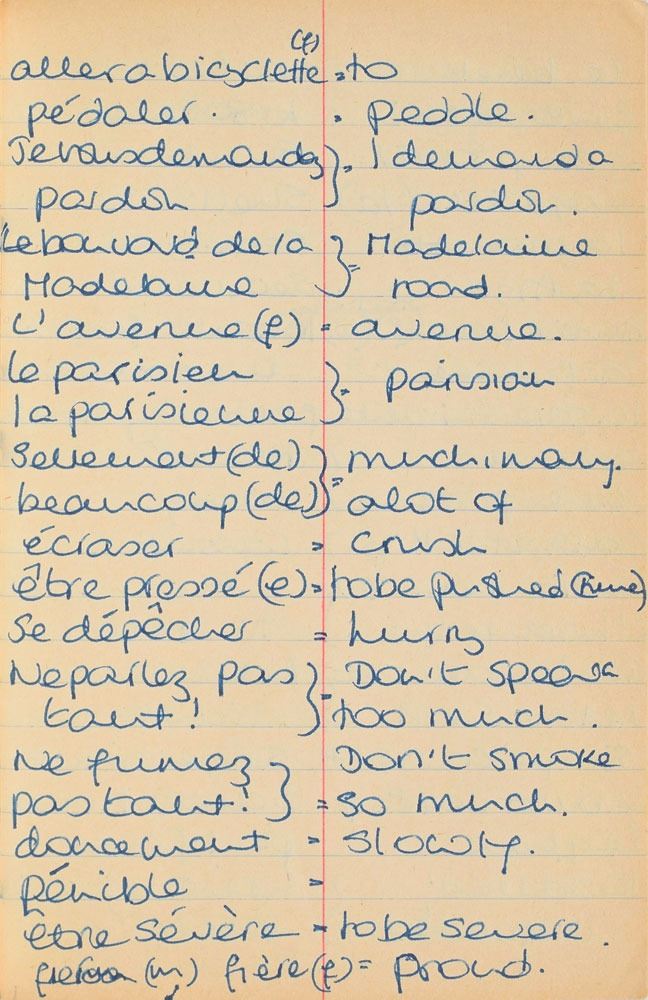 (f)
aller a bicyclette = to
pédaler . = peddle.
Je vous demandez } = I demand a
pardon pardon.
Le bouvard de la } = Madelaine
Madelaine road.
L'avenue (f) = avenue.
le parisien } = parisian
la parisienne
Sellement (de) } = much, many.
beaucoup (de) alot of
écraser = crush
être pressé (e) = to be pushed (time)
Se dépêcher = hurry
Ne parlez pas } = Don't speak
tant! too much.
Ne fumez } Don't smoke
pas tant! = so much.
doucement = slowly.
pénible =
être sévère = to be severe.
(m) fière (f) = proud.